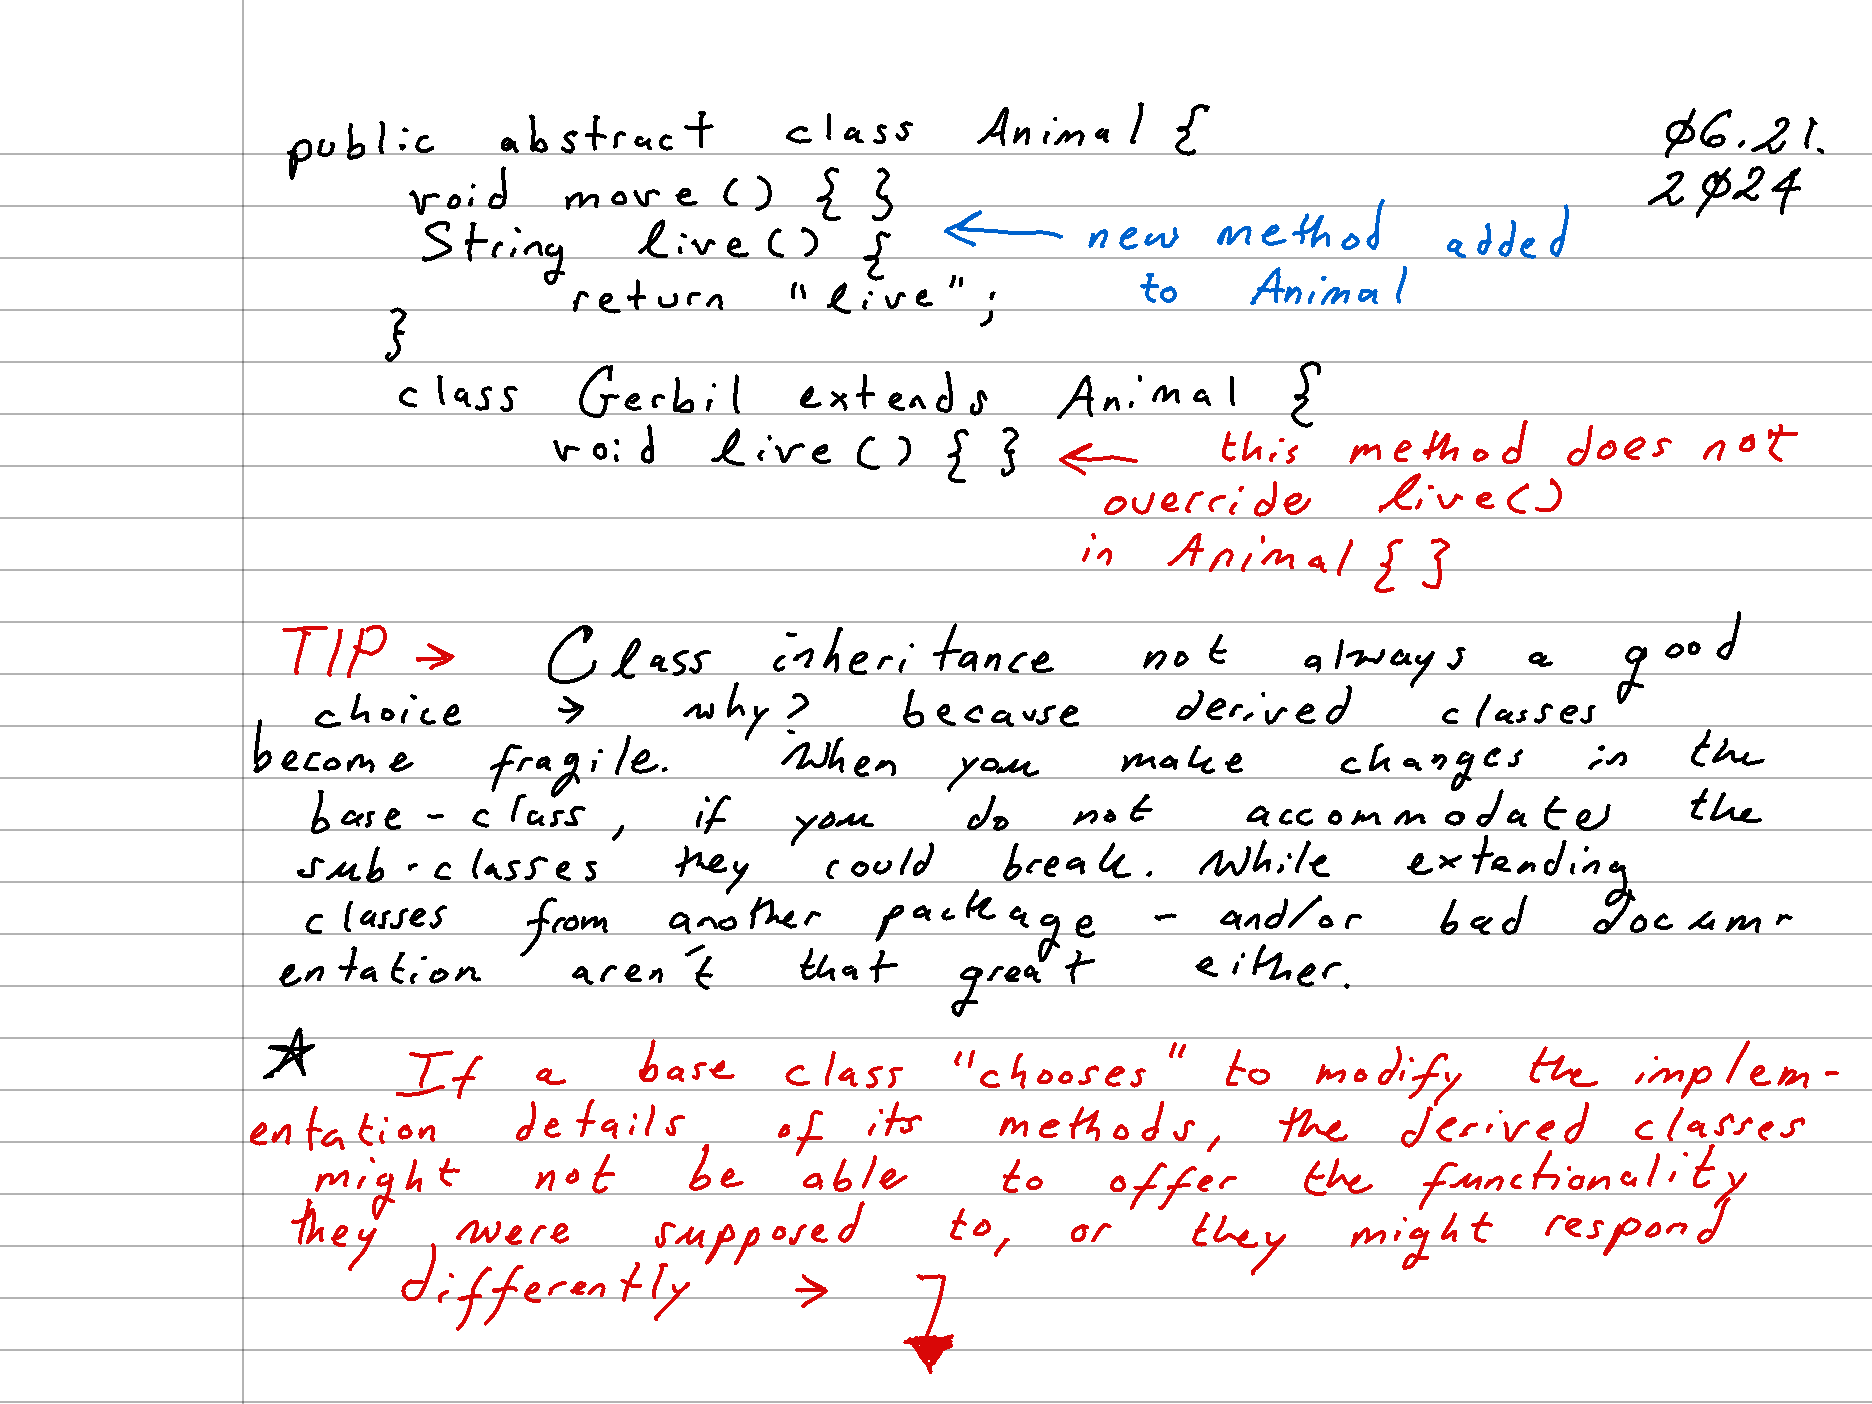 public abstract class Animal { ø6.21.
void move() { } 2ø24
String live() { ← new method added
return "live"; to Animal
}
class Gerbil extends Animal {
void live() { } ← this method does not
override live()
in Animal { }
TIP → Class inheritance not always a good
choice → why? because derived classes
become fragile. When you make changes in the
base-class, if you do not accommodate the
sub-classes they could break. While extending
classes from another package - and/or bad docum-
entation aren't that great either.
☆ If a base class "chooses" to modify the implem-
entation details of its methods, the derived classes
might not be able to offer the functionality
they were supposed to, or they might respond
differently →